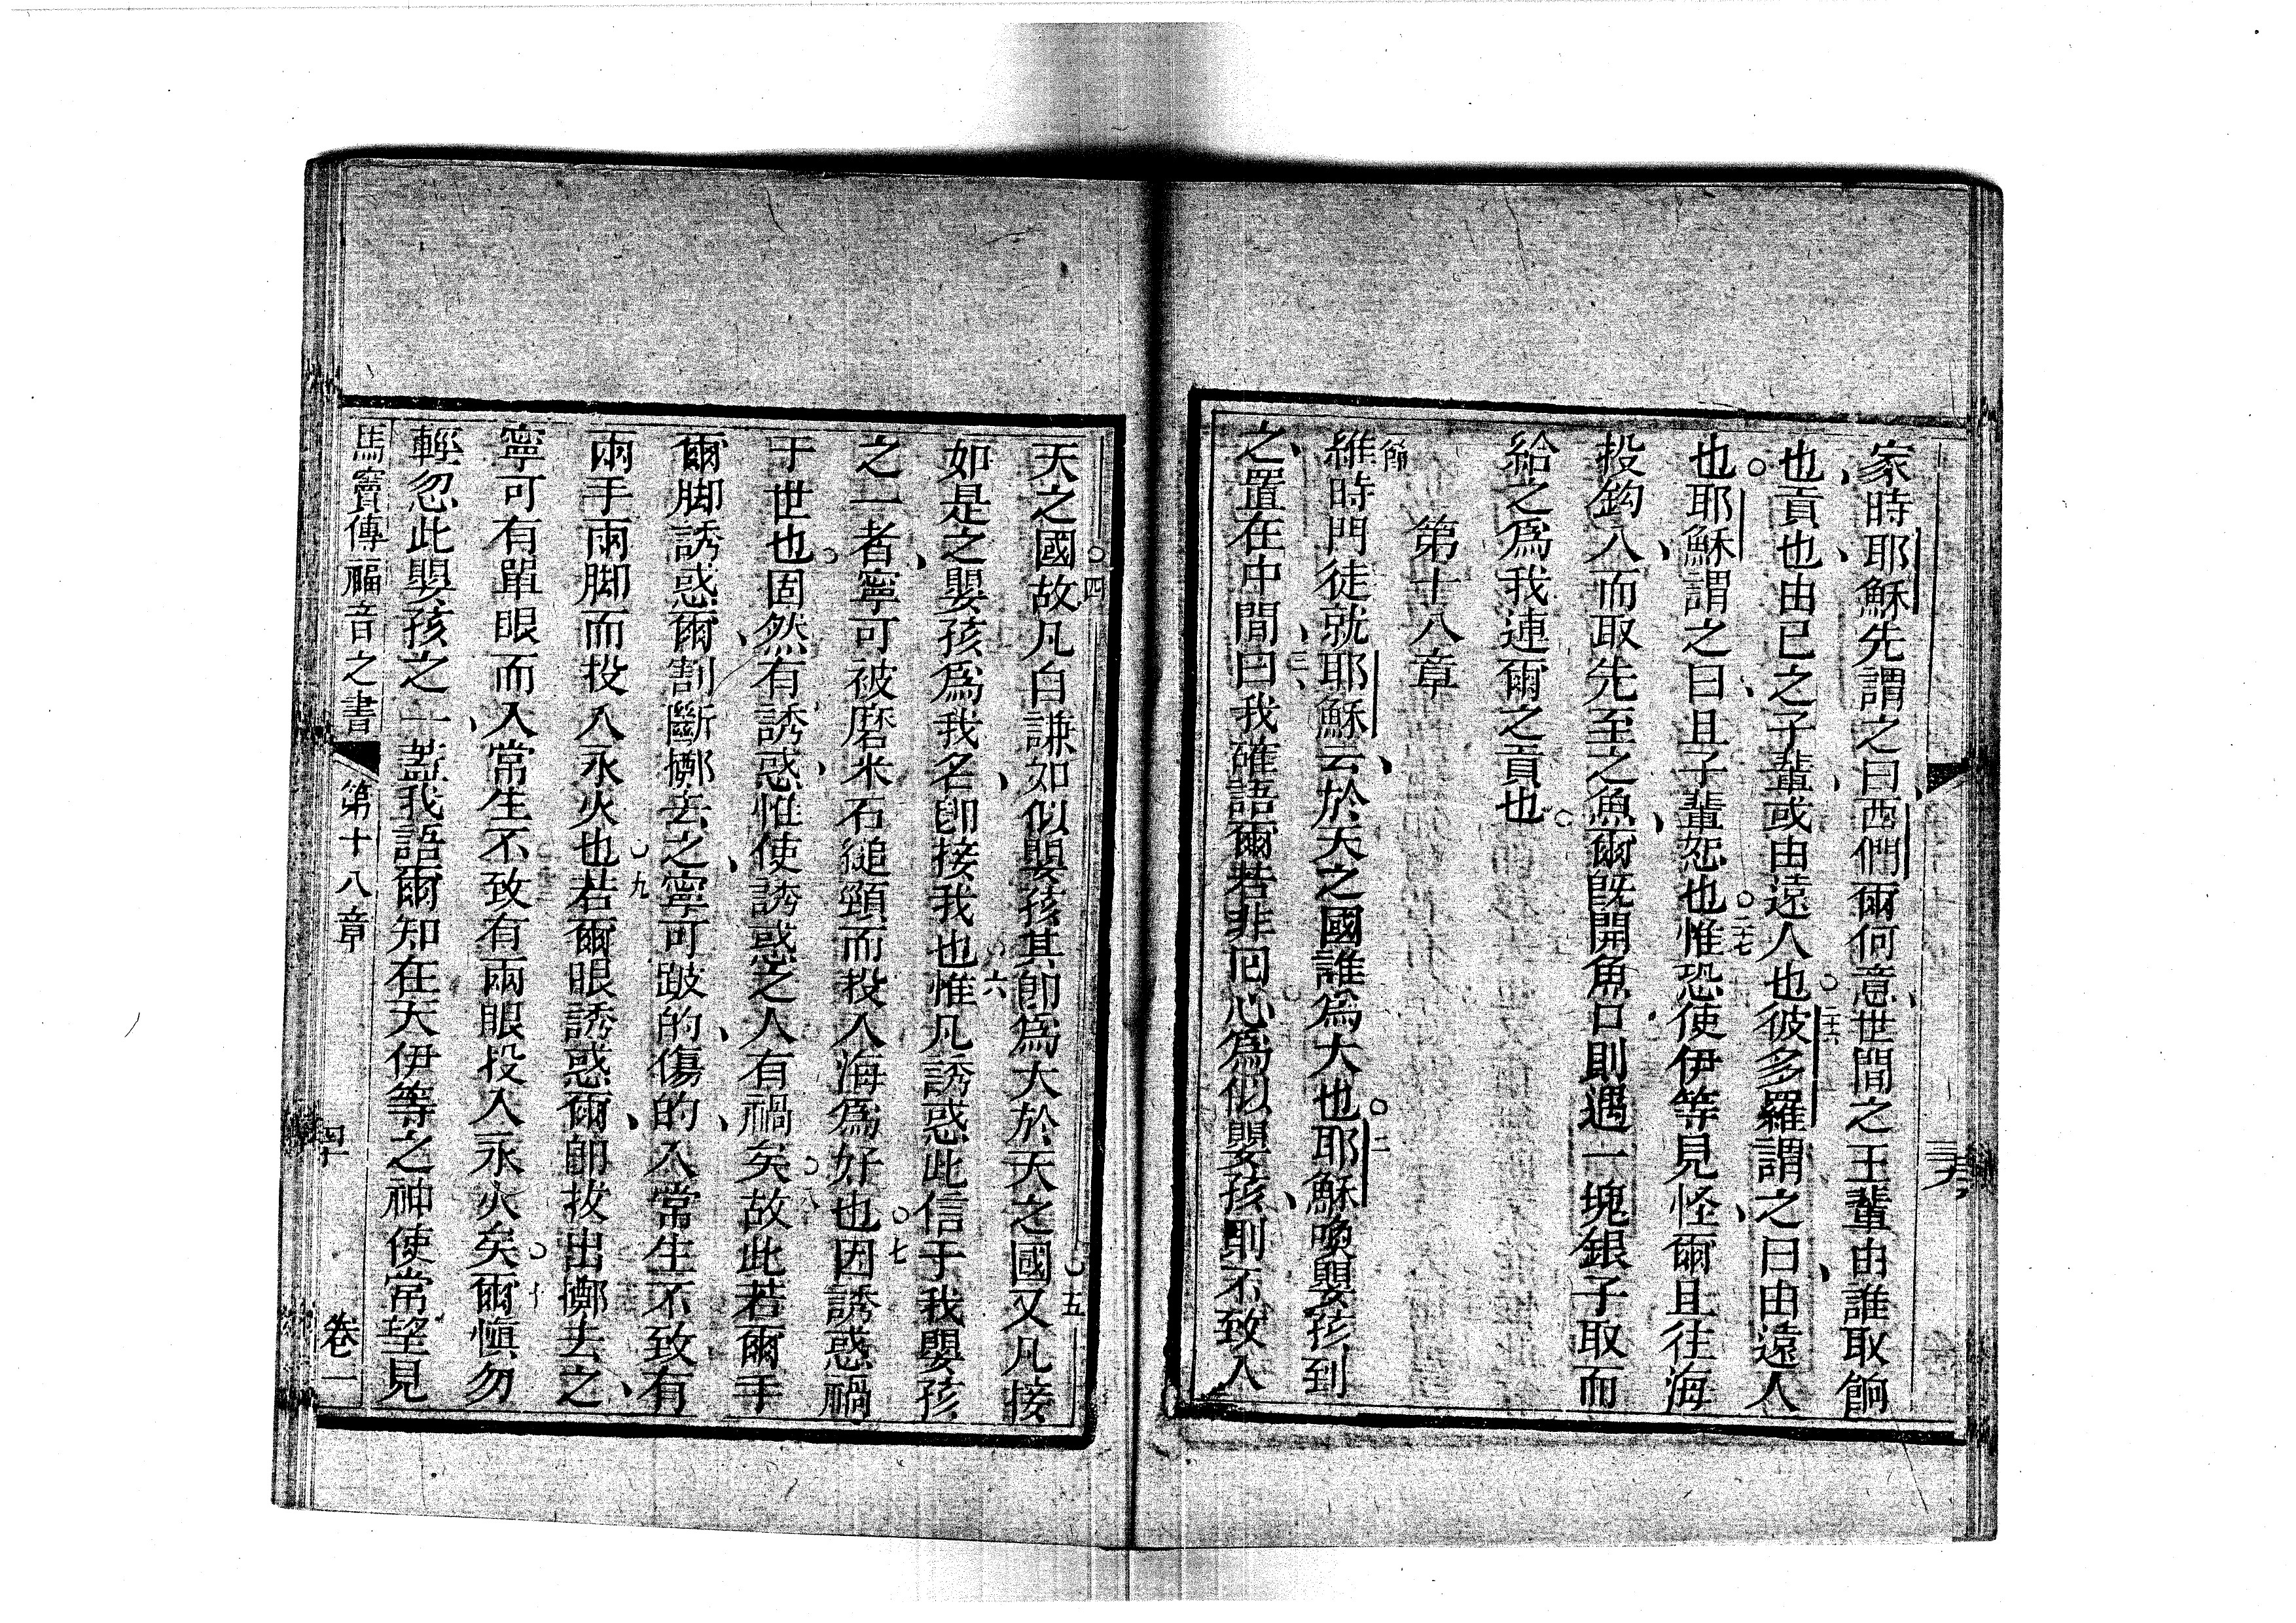 家時耶穌先謂之曰西們爾何意世間之王輩由誰取餉
也貢也由已之子輩或由遠人也○二十六彼多羅謂之曰由遠人
也○耶穌謂之曰且子輩恕也○二十七惟恐使伊等見怪爾且往海
投鈎入而取先至之魚爾既開魚口則遇一塊銀子取而
給之為我連爾之貢也○
第十八章
一節維時門徒就耶穌云於天之國誰為大也○二耶穌喚嬰孩到
之置在中間三曰我確語爾若非回心為似嬰孩則不致入
天之國○四故凡自謙如似嬰孩其即為大於天之國○五又凡接
如是之嬰孩為我名即接我也○六惟凡誘惑此信于我嬰孩
之一者寧可被磨米石縋頸而投入海為好也○七因誘惑禍
于世也○固然有誘惑惟使誘惑之人有禍矣○八故此若爾手
爾脚誘惑爾割斷擲去之寧可跛的傷的入常生不致有
兩手兩脚而投入永火也○九若爾眼誘惑爾即拔出擲去之
寧可有單眼而入常生不致有兩眼投入永火矣○十爾慎勿
輕忽此嬰孩之一蓋我語爾知在天伊等之神使常望見
馬竇傳福音之書 第十八章 四十 卷一